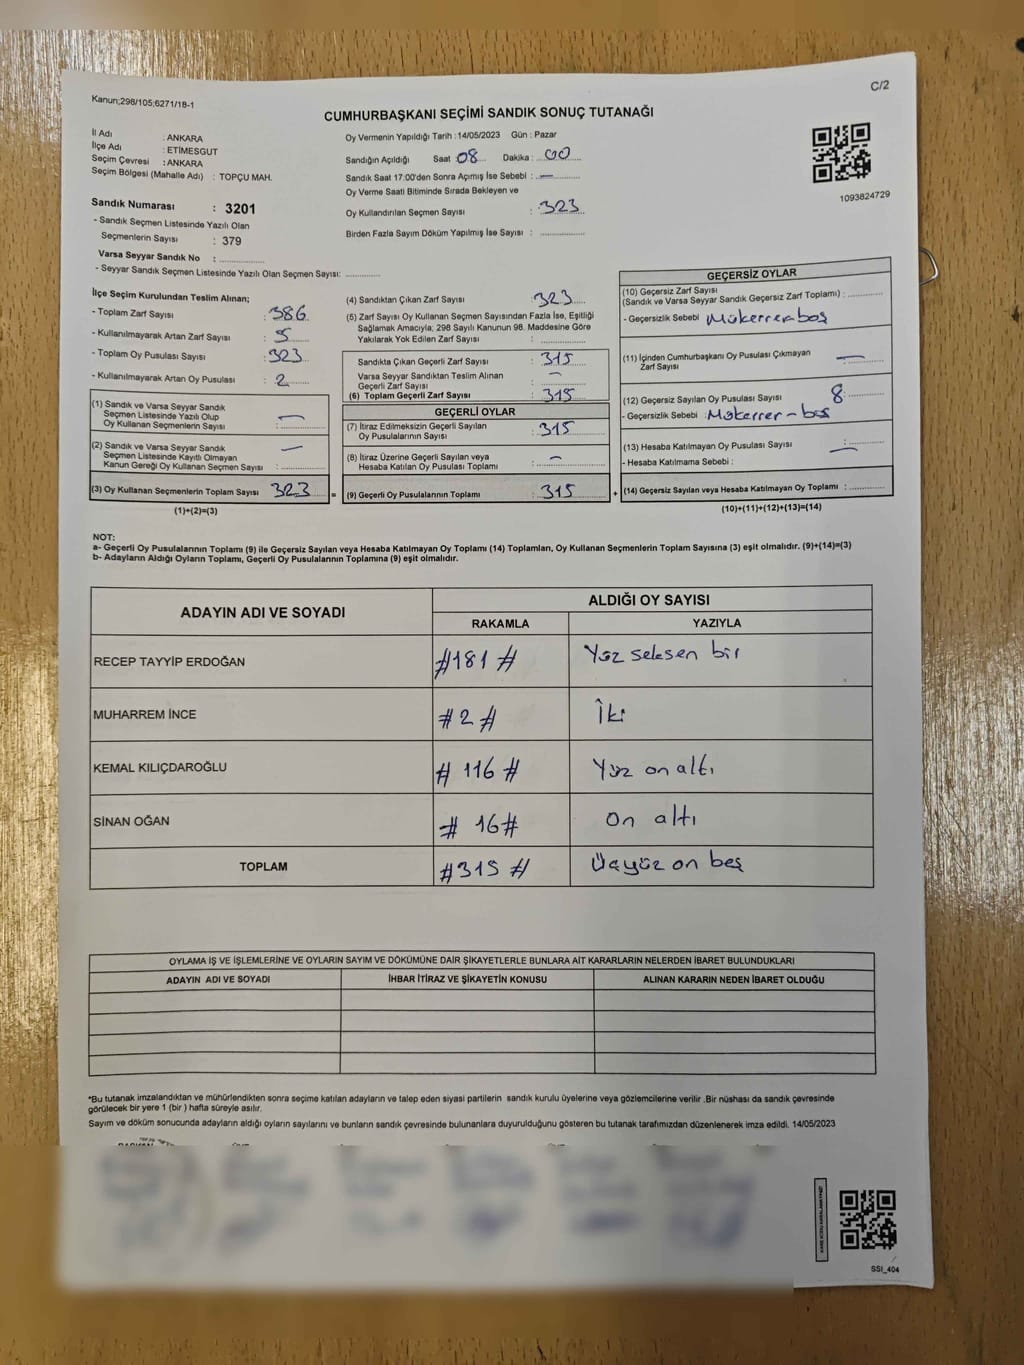 C/2
Kanun;298/105;6271/18-1
CUMHURBAŞKANI SEÇİMİ SANDIK SONUÇ TUTANAĞI
İl Adı : ANKARA
İlçe Adı : ETİMESGUT
Seçim Çevresi : ANKARA
Seçim Bölgesi (Mahalle Adı) : TOPÇU MAH.
Sandık Numarası : 3201
- Sandık Seçmen Listesinde Yazılı Olan
Seçmenlerin Sayısı : 379
Varsa Seyyar Sandık No :
- Seyyar Sandık Seçmen Listesinde Yazılı Olan Seçmen Sayısı:
Oy Vermenin Yapıldığı Tarih :14/05/2023 Gün : Pazar
Sandığın Açıldığı Saat :08 Dakika : 00
Sandık Saat 17:00'den Sonra Açımış İse Sebebi : —
Oy Verme Saati Bitiminde Sırada Bekleyen ve
Oy Kullandırılan Seçmen Sayısı : 323
Birden Fazla Sayım Döküm Yapılmış İse Sayısı :
1093824729
İlçe Seçim Kurulundan Teslim Alınan;
- Toplam Zarf Sayısı : 386
- Kullanılmayarak Artan Zarf Sayısı : 5
- Toplam Oy Pusulası Sayısı : 323
- Kullanılmayarak Artan Oy Pusulası : 2
(1) Sandık ve Varsa Seyyar Sandık
Seçmen Listesinde Yazılı Olup
Oy Kullanan Seçmenlerin Sayısı : —
(2) Sandık ve Varsa Seyyar Sandık
Seçmen Listesinde Kayıtlı Olmayan
Kanun Gereği Oy Kullanan Seçmen Sayısı : —
(3) Oy Kullanan Seçmenlerin Toplam Sayısı 323 =
(1)+(2)=(3)
(4) Sandıktan Çıkan Zarf Sayısı 323
(5) Zarf Sayısı Oy Kullanan Seçmen Sayısından Fazla İse, Eşitliği
Sağlamak Amacıyla; 298 Sayılı Kanunun 98. Maddesine Göre
Yakılarak Yok Edilen Zarf Sayısı :
Sandıkta Çıkan Geçerli Zarf Sayısı : 315
Varsa Seyyar Sandıktan Teslim Alınan
Geçerli Zarf Sayısı : —
(6) Toplam Geçerli Zarf Sayısı : 315
GEÇERLİ OYLAR
(7) İtiraz Edilmeksizin Geçerli Sayılan
Oy Pusulalarının Sayısı : 315
(8) İtiraz Üzerine Geçerli Sayılan veya
Hesaba Katılan Oy Pusulası Toplamı : —
(9) Geçerli Oy Pusulalarının Toplamı : 315 +
GEÇERSİZ OYLAR
(10) Geçersiz Zarf Sayısı
(Sandık ve Varsa Seyyar Sandık Geçersiz Zarf Toplamı) :
- Geçersizlik Sebebi : Mükerrer-boş
(11) İçinden Cumhurbaşkanı Oy Pusulası Çıkmayan
Zarf Sayısı : —
(12) Geçersiz Sayılan Oy Pusulası Sayısı : 8
- Geçersizlik Sebebi : Mükerrer-boş
(13) Hesaba Katılmayan Oy Pusulası Sayısı : —
- Hesaba Katılmama Sebebi :
(14) Geçersiz Sayılan veya Hesaba Katılmayan Oy Toplamı :
(10)+(11)+(12)+(13)=(14)
NOT:
a- Geçerli Oy Pusulalarının Toplamı (9) ile Geçersiz Sayılan veya Hesaba Katılmayan Oy Toplamı (14) Toplamları, Oy Kullanan Seçmenlerin Toplam Sayısına (3) eşit olmalıdır. (9)+(14)=(3)
b- Adayların Aldığı Oyların Toplamı, Geçerli Oy Pusulalarının Toplamına (9) eşit olmalıdır.
ADAYIN ADI VE SOYADI ALDIĞI OY SAYISI
RAKAMLA YAZIYLA
RECEP TAYYİP ERDOĞAN #181# Yüz seksen bir
MUHARREM İNCE #2# İki
KEMAL KILIÇDAROĞLU #116# Yüz on altı
SİNAN OĞAN #16# On altı
TOPLAM #315# Üçyüz on beş
OYLAMA İŞ VE İŞLEMLERİNE VE OYLARIN SAYIM VE DÖKÜMÜNE DAİR ŞİKAYETLERLE BUNLARA AİT KARARLARIN NELERDEN İBARET BULUNDUKLARI
ADAYIN ADI VE SOYADI İHBAR İTİRAZ VE ŞİKAYETİN KONUSU ALINAN KARARIN NEDEN İBARET OLDUĞU
*Bu tutanak imzalandıktan ve mühürlendikten sonra seçime katılan adayların ve talep eden siyasi partilerin sandık kurulu üyelerine veya gözlemcilerine verilir .Bir nüshası da sandık çevresinde
görülecek bir yere 1 (bir ) hafta süreyle asılır.
Sayım ve döküm sonucunda adayların aldığı oyların sayılarını ve bunların sandık çevresinde bulunanlara duyurulduğunu gösteren bu tutanak tarafımızdan düzenlenerek imza edildi. 14/05/2023
SSİ_404